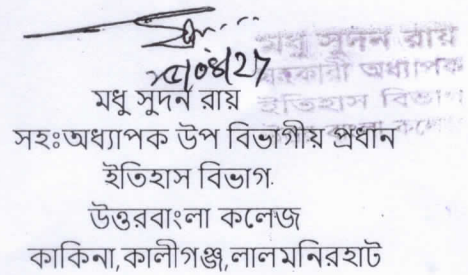 মধু সুদন রায়
সহকারী অধ্যাপক
ইতিহাস বিভাগ
মধু সুদন রায়
সহঃঅধ্যাপক উপ বিভাগীয় প্রধান
ইতিহাস বিভাগ.
উত্তরবাংলা কলেজ
কাকিনা,কালীগঞ্জ,লালমনিরহাট